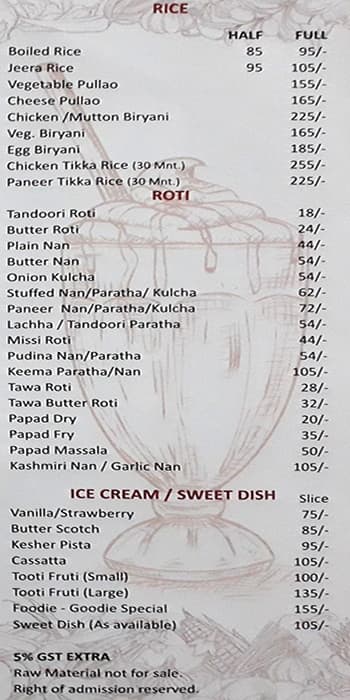 RICE
HALF FULL
Boiled Rice 85 95/-
Jeera Rice 95 105/-
Vegetable Pullao 155/-
Cheese Pullao 165/-
Chicken /Mutton Biryani 225/-
Veg. Biryani 165/-
Egg Biryani 185/-
Chicken Tikka Rice (30 Mnt.) 255/-
Paneer Tikka Rice (30 Mnt.) 225/-
ROTI
Tandoori Roti 18/-
Butter Roti 24/-
Plain Nan 44/-
Butter Nan 54/-
Onion Kulcha 54/-
Stuffed Nan/Paratha/ Kulcha 62/-
Paneer Nan/Paratha/Kulcha 72/-
Lachha / Tandoori Paratha 54/-
Missi Roti 44/-
Pudina Nan/Paratha 54/-
Keema Paratha/Nan 105/-
Tawa Roti 28/-
Tawa Butter Roti 32/-
Papad Dry 20/-
Papad Fry 35/-
Papad Massala 50/-
Kashmiri Nan / Garlic Nan 105/-
ICE CREAM / SWEET DISH Slice
Vanilla/Strawberry 75/-
Butter Scotch 85/-
Kesher Pista 95/-
Cassatta 105/-
Tooti Fruti (Small) 100/-
Tooti Fruti (Large) 135/-
Foodie - Goodie Special 155/-
Sweet Dish (As available) 105/-
5% GST EXTRA
Raw Material not for sale.
Right of admission reserved.